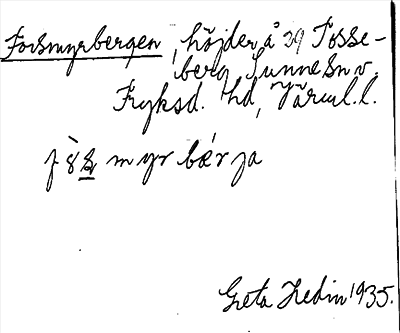 Forsmyrbergen, höjder å 29 Tosse-
berg Sunne sn v.
Fryksd. hd, Värml.l.
myr bær ja
Greta Hedin 1935.